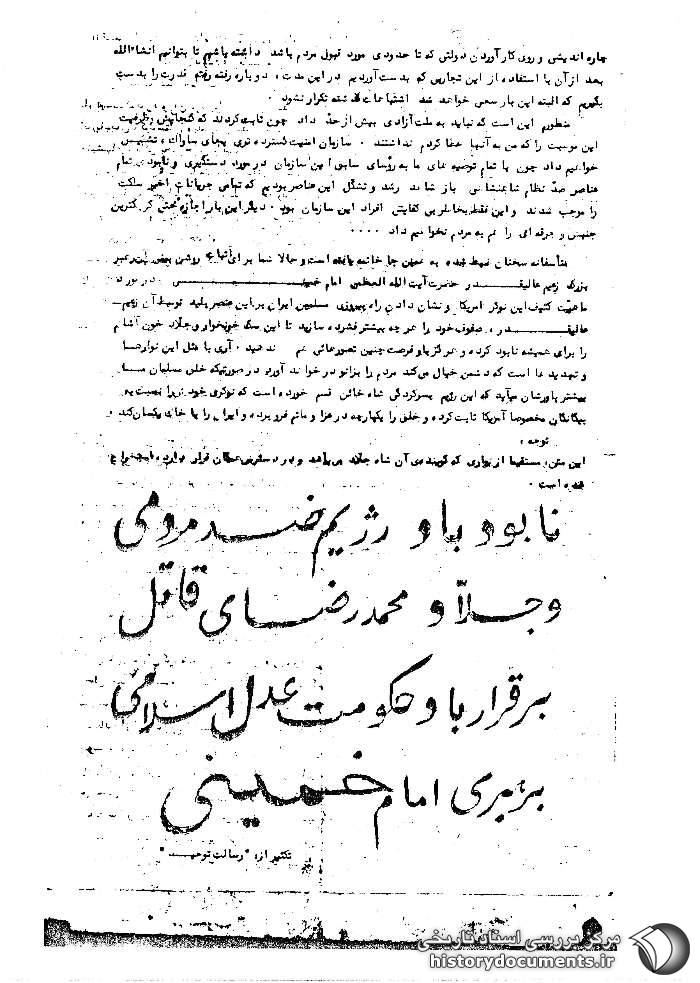 چاره اندیشی و روی کار آوردن دولتی که تا حدودی مورد قبول مردم باشد داشته باشیم تا بتوانیم انشاءالله
بعد از آن با استفاده از این تجاربی که بدست آوردیم در این مدت، دوباره رفته رفته قدرت را بدست
بگیریم که البته این بار سعی خواهد شد اشتباهات گذشته تکرار نشود.
منظورم این است که نباید به ملت آزادی بیش از حد داد چون ثابت کردند که گنجایش و ظرفیت
این موهبت را که من به آنها عطا کردم نداشتند. سازمان امنیت گسترده تری بجای ساواک، تشکیل
خواهیم داد چون با تمام توصیه های ما به رؤسای سابق این سازمان در مورد دستگیری و نابودی تمام
عناصر ضد نظام شاهنشاهی باز شاهد رشد و تشکل این عناصر بودیم که تمامی جریانات اخیر مملکت
را موجب شدند و این فقط بخاطر بی کفایتی افراد این سازمان بود. دیگر این بار اجازه کوچکترین
جنبش و حرکه ای را هم به مردم نخواهیم داد ....
متأسفانه سخنان ضبط شده به همین جا خاتمه یافته است و حالا شما برای
بزرگ زعیم عالیقدر حضرت آیت الله العظمی امام خمینی در مورد
ماهیت کثیف این نوکر امریکا و نشان دادن راه پیروزی مسلمین ایران بر این عنصر پلید توسط آن زعیم
عالیقدر، صفوف خود را هر چه بیشتر فشرده سازید تا این سگ خونخوار و جلاد خون آشام
را برای همیشه نابود کرده و هرگز باو فرصت چنین تصورهائی هم ندهید. آری با مثل این نوارها
و تهدیدها است که دشمن خیال می‌کند مردم را بزانو در خواهد آورد در صورتیکه خلق مسلمان ما
بیشتر باورشان میآید که این رژیم بسرکردگی شاه خائن قسم خورده است که نوکری خود را نسبت به
بیگانگان مخصوصا آمریکا ثابت کرده و خلق را یکپارچه در عزا و ماتم فرو برده و ایران را با خاک یکسان کند.
توجه:
این متن، مستقیما از نواری که گوینده‌ی آن شاه جلاد می‌باشد و در دسترس همگان قرار دارد، استخراج
شده است.
نابود باد رژیم ضد مردمی
و جلّاد محمد رضای قاتل
برقرار باد حکومت عدل اسلامی
برهبری امام خمینی
تکثیر از: "رسالت توحید"
مرکز بررسی اسناد تاریخی
historydocuments.ir